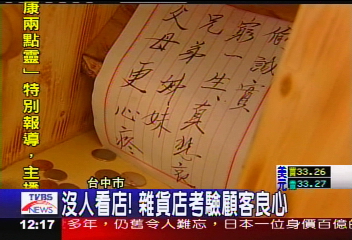 康兩點靈」特別報導，主播
偷誠實
窮一生真悲哀
兄弟姊妹
父母更心疼
美元
33.26
33.27
台中市
TVBS NEWS
沒人看店! 雜貨店考驗顧客良心
12:17
多年，仍舊令人難忘，日本一位身價百億的